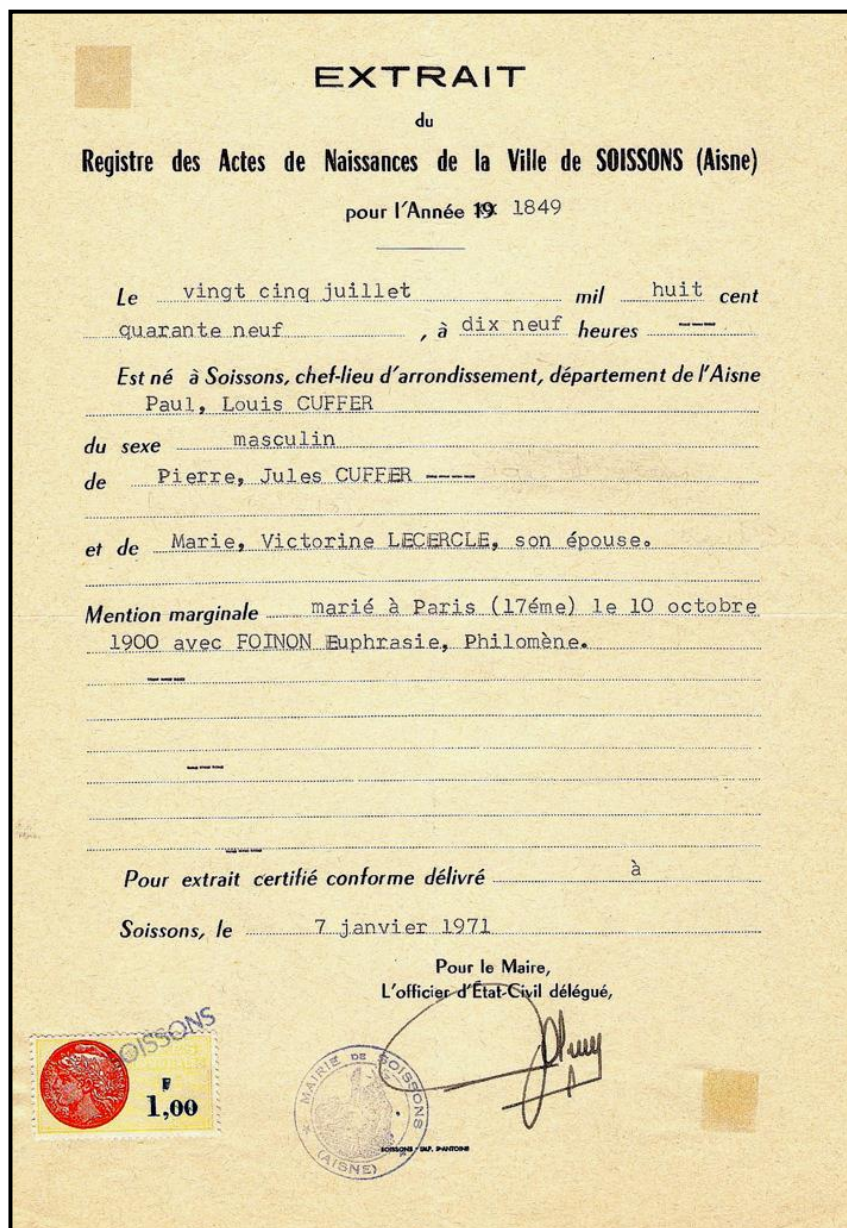 EXTRAIT
du
Registre des Actes de Naissances de la Ville de SOISSONS (Aisne)
pour l'Année 19 1849
Le vingt cinq juillet mil huit cent
quarante neuf , à dix neuf heures
Est né à Soissons, chef-lieu d'arrondissement, département de l'Aisne
Paul, Louis CUFFER
du sexe masculin
de Pierre, Jules CUFFER ----
et de Marie, Victorine LECERCLE, son épouse.
Mention marginale marié à Paris (17éme) le 10 octobre
1900 avec FOINON Euphrasie, Philomène.
Pour extrait certifié conforme délivré à
Soissons, le 7 janvier 1971
Pour le Maire,
L'officier d'État-Civil délégué,
OISSONS
F
1,00
MAIRIE DE SOISSONS
(AISNE)
SOISSONS - IMP. ST-ANTOINE